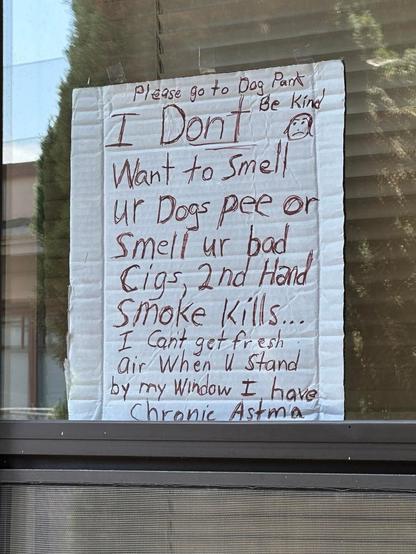 Please go to Dog Park
Be Kind
I Dont
Want to Smell
ur Dogs pee or
Smell ur bad
Cigs, 2nd Hand
Smoke Kills...
I Cant get fresh
air When U Stand
by my Window I have
Chronic Astma